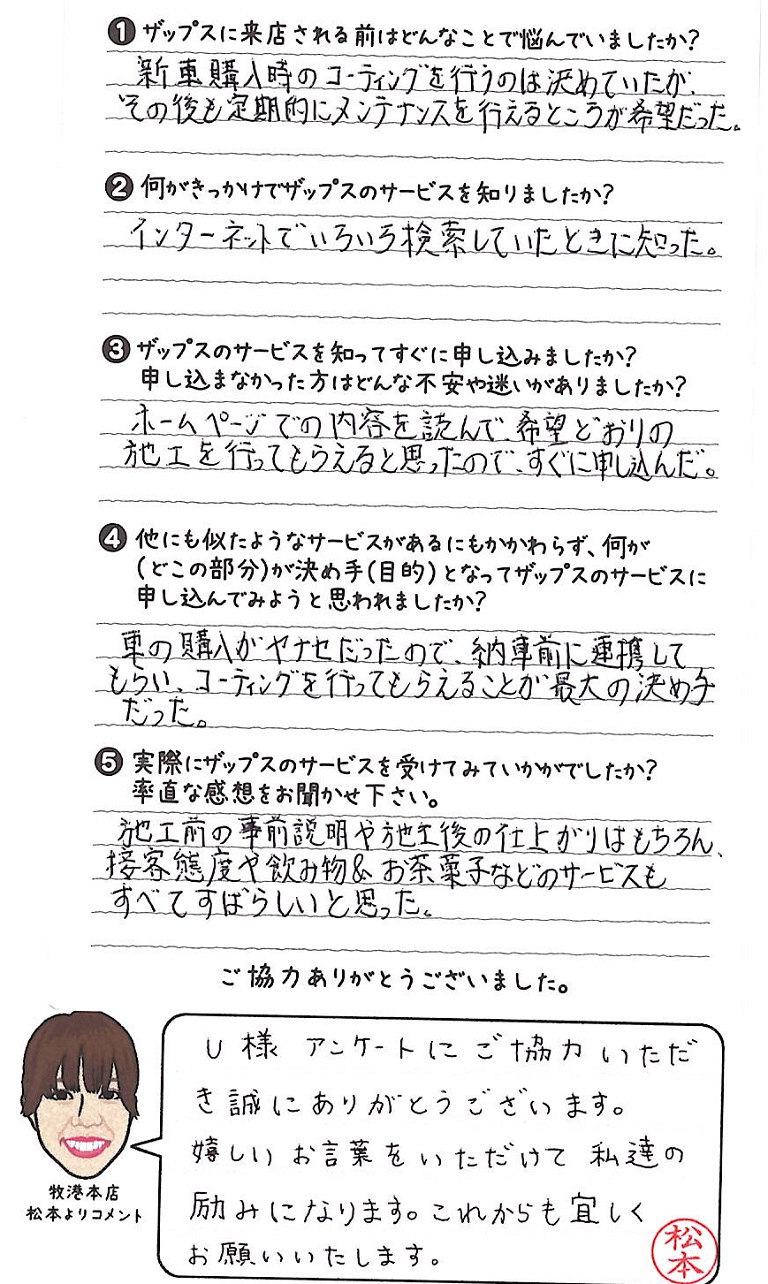 ❶ザップスに来店される前はどんなことで悩んでいましたか?
新車購入時のコーティングを行うのは決めていたが、
その後も定期的にメンテナンスを行えるところが希望だった。
❷何がきっかけでザップスのサービスを知りましたか?
インターネットでいろいろ検索していたときに知った。
❸ザップスのサービスを知ってすぐに申し込みましたか?
申し込まなかった方はどんな不安や迷いがありましたか?
ホームページでの内容を読んで、希望どおりの
施工を行ってもらえると思ったので、すぐに申し込んだ。
❹他にも似たようなサービスがあるにもかかわらず、何が
(どこの部分)が決め手(目的)となってザップスのサービスに
申し込んでみようと思われましたか?
車の購入がヤナセだったので、納車前に連携して
もらい、コーティングを行ってもらえることが最大の決め手
だった。
❺実際にザップスのサービスを受けてみていかがでしたか?
率直な感想をお聞かせ下さい。
施工前の事前説明や施工後の仕上がりはもちろん、
接客態度や飲み物&お茶菓子などのサービスも
すべてすばらしいと思った。
ご協力ありがとうございました。
U様 アンケートにご協力いただ
き誠にありがとうございます。
嬉しいお言葉をいただけて私達の
励みになります。これからも宜しく
お願いいたします。
牧港本店
松本よりコメント
松本